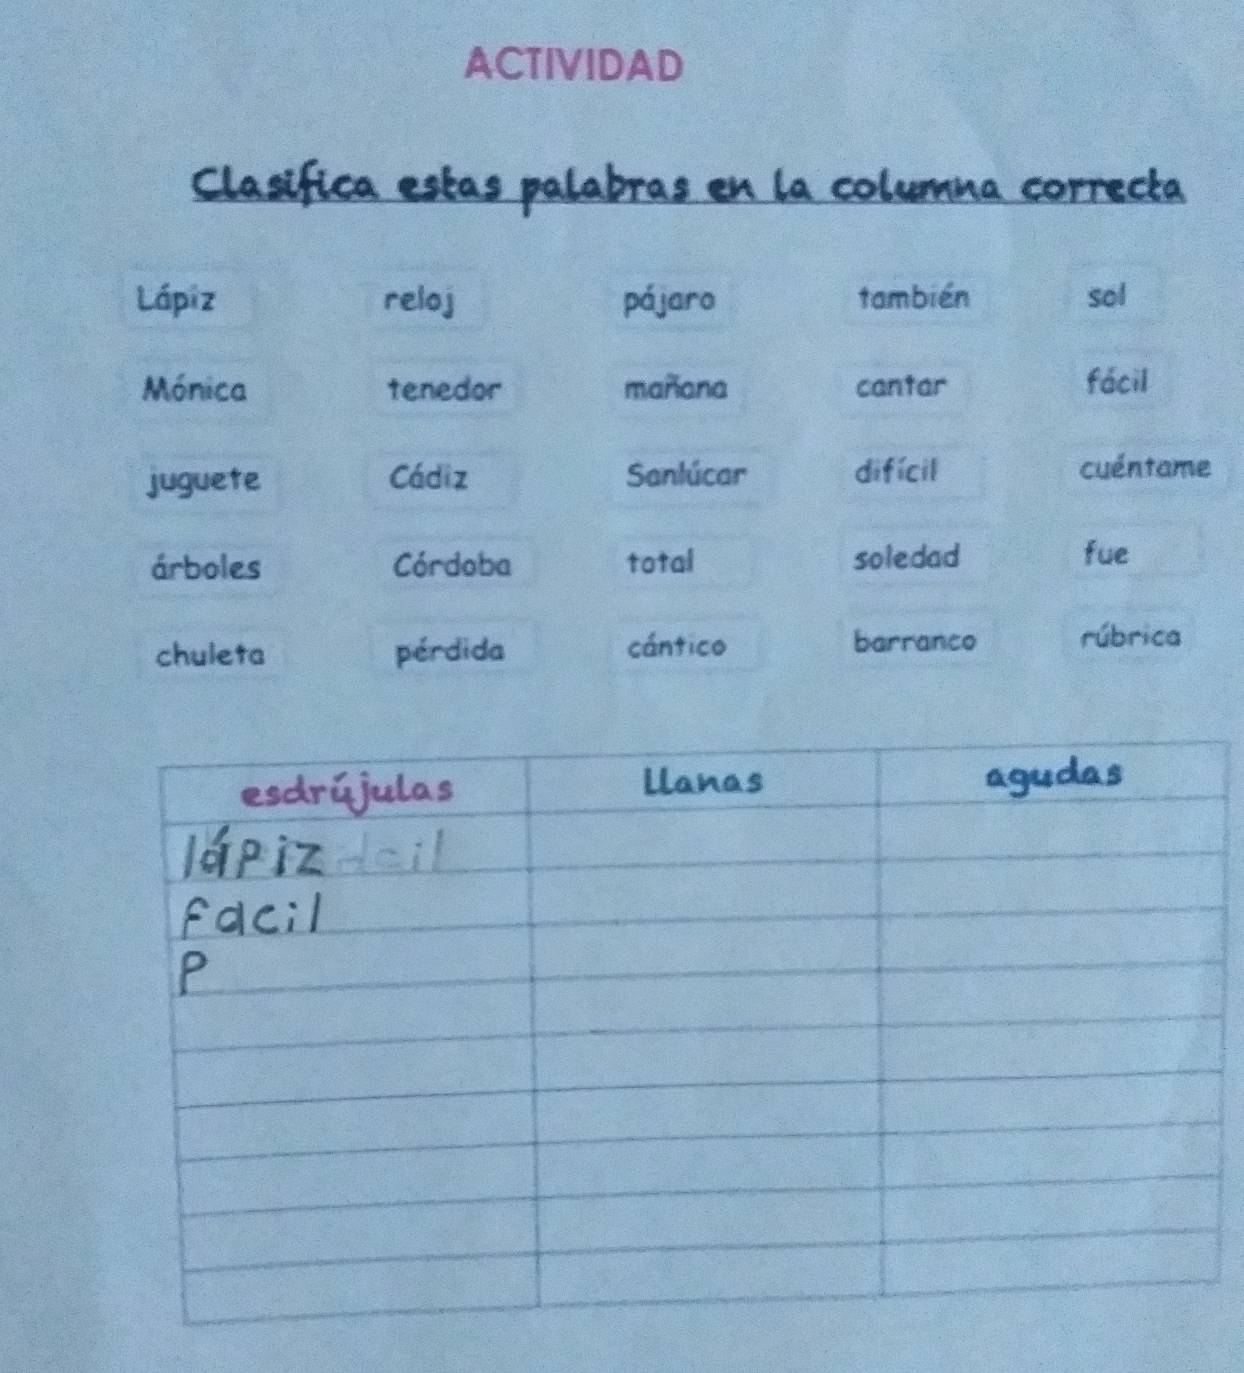 ACTIVIDAD
Clasifica estas palabras en la columna correcta
Lápiz reloj pájaro también sol
Mónica tenedor mañana cantar fácil
juguete Cádiz Sanlúcar difícil cuéntame
árboles Córdoba total soledad fue
chuleta pérdida cántico barranco rúbrica
esdrújulas Llanas agudas
lápiz
facil
P